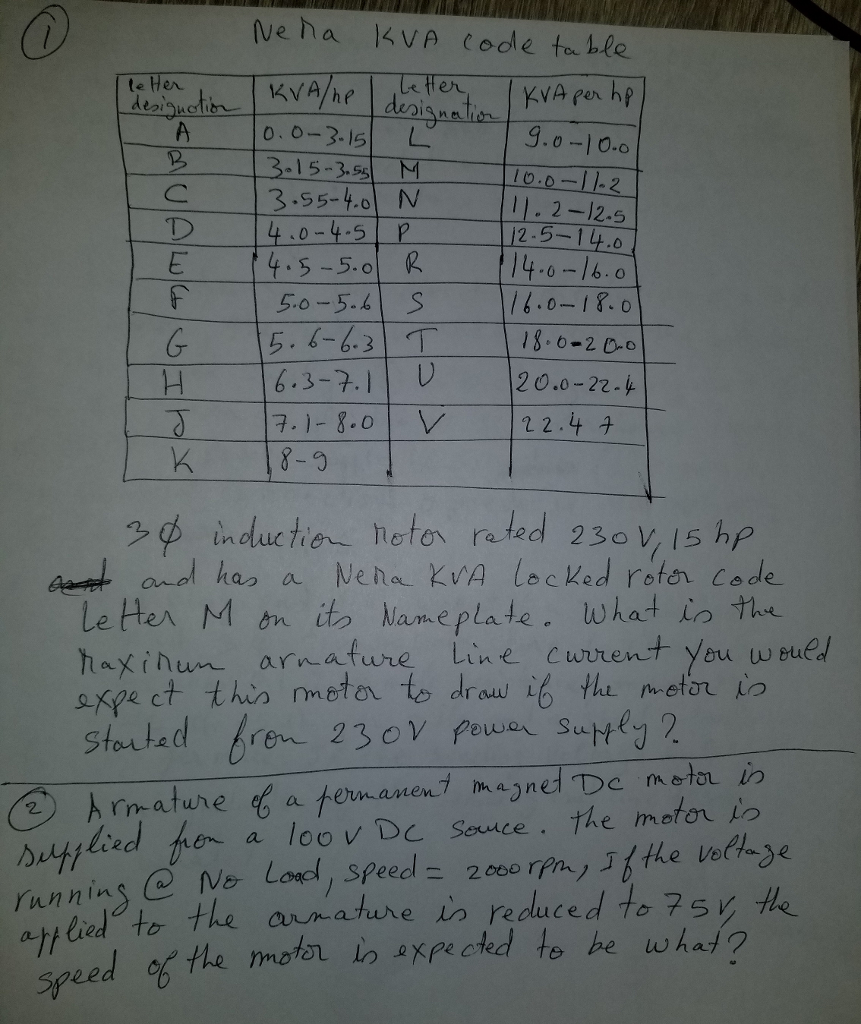 ① Nema KVA code table
letter designation | KVA/hp | Letter designation | KVA per hp
A | 0.0-3.15 | L | 9.0-10.0
B | 3.15-3.55 | M | 10.0-11.2
C | 3.55-4.0 | N | 11.2-12.5
D | 4.0-4.5 | P | 12.5-14.0
E | 4.5-5.0 | R | 14.0-16.0
F | 5.0-5.6 | S | 16.0-18.0
G | 5.6-6.3 | T | 18.0-20.0
H | 6.3-7.1 | U | 20.0-22.4
J | 7.1-8.0 | V | 22.4
K | 8-9
3φ induction motor rated 230V, 15 hp
and has a Nema KVA locked rotor code
letter M on its Nameplate. What is the
maximum armature line current you would
expect this motor to draw if the motor is
started from 230V power supply?
② Armature of a permanent magnet DC motor is
supplied from a 100V DC source. the motor is
running @ No Load, speed = 2000rpm, If the voltage
applied to the armature is reduced to 75V, the
speed of the motor is expected to be what?